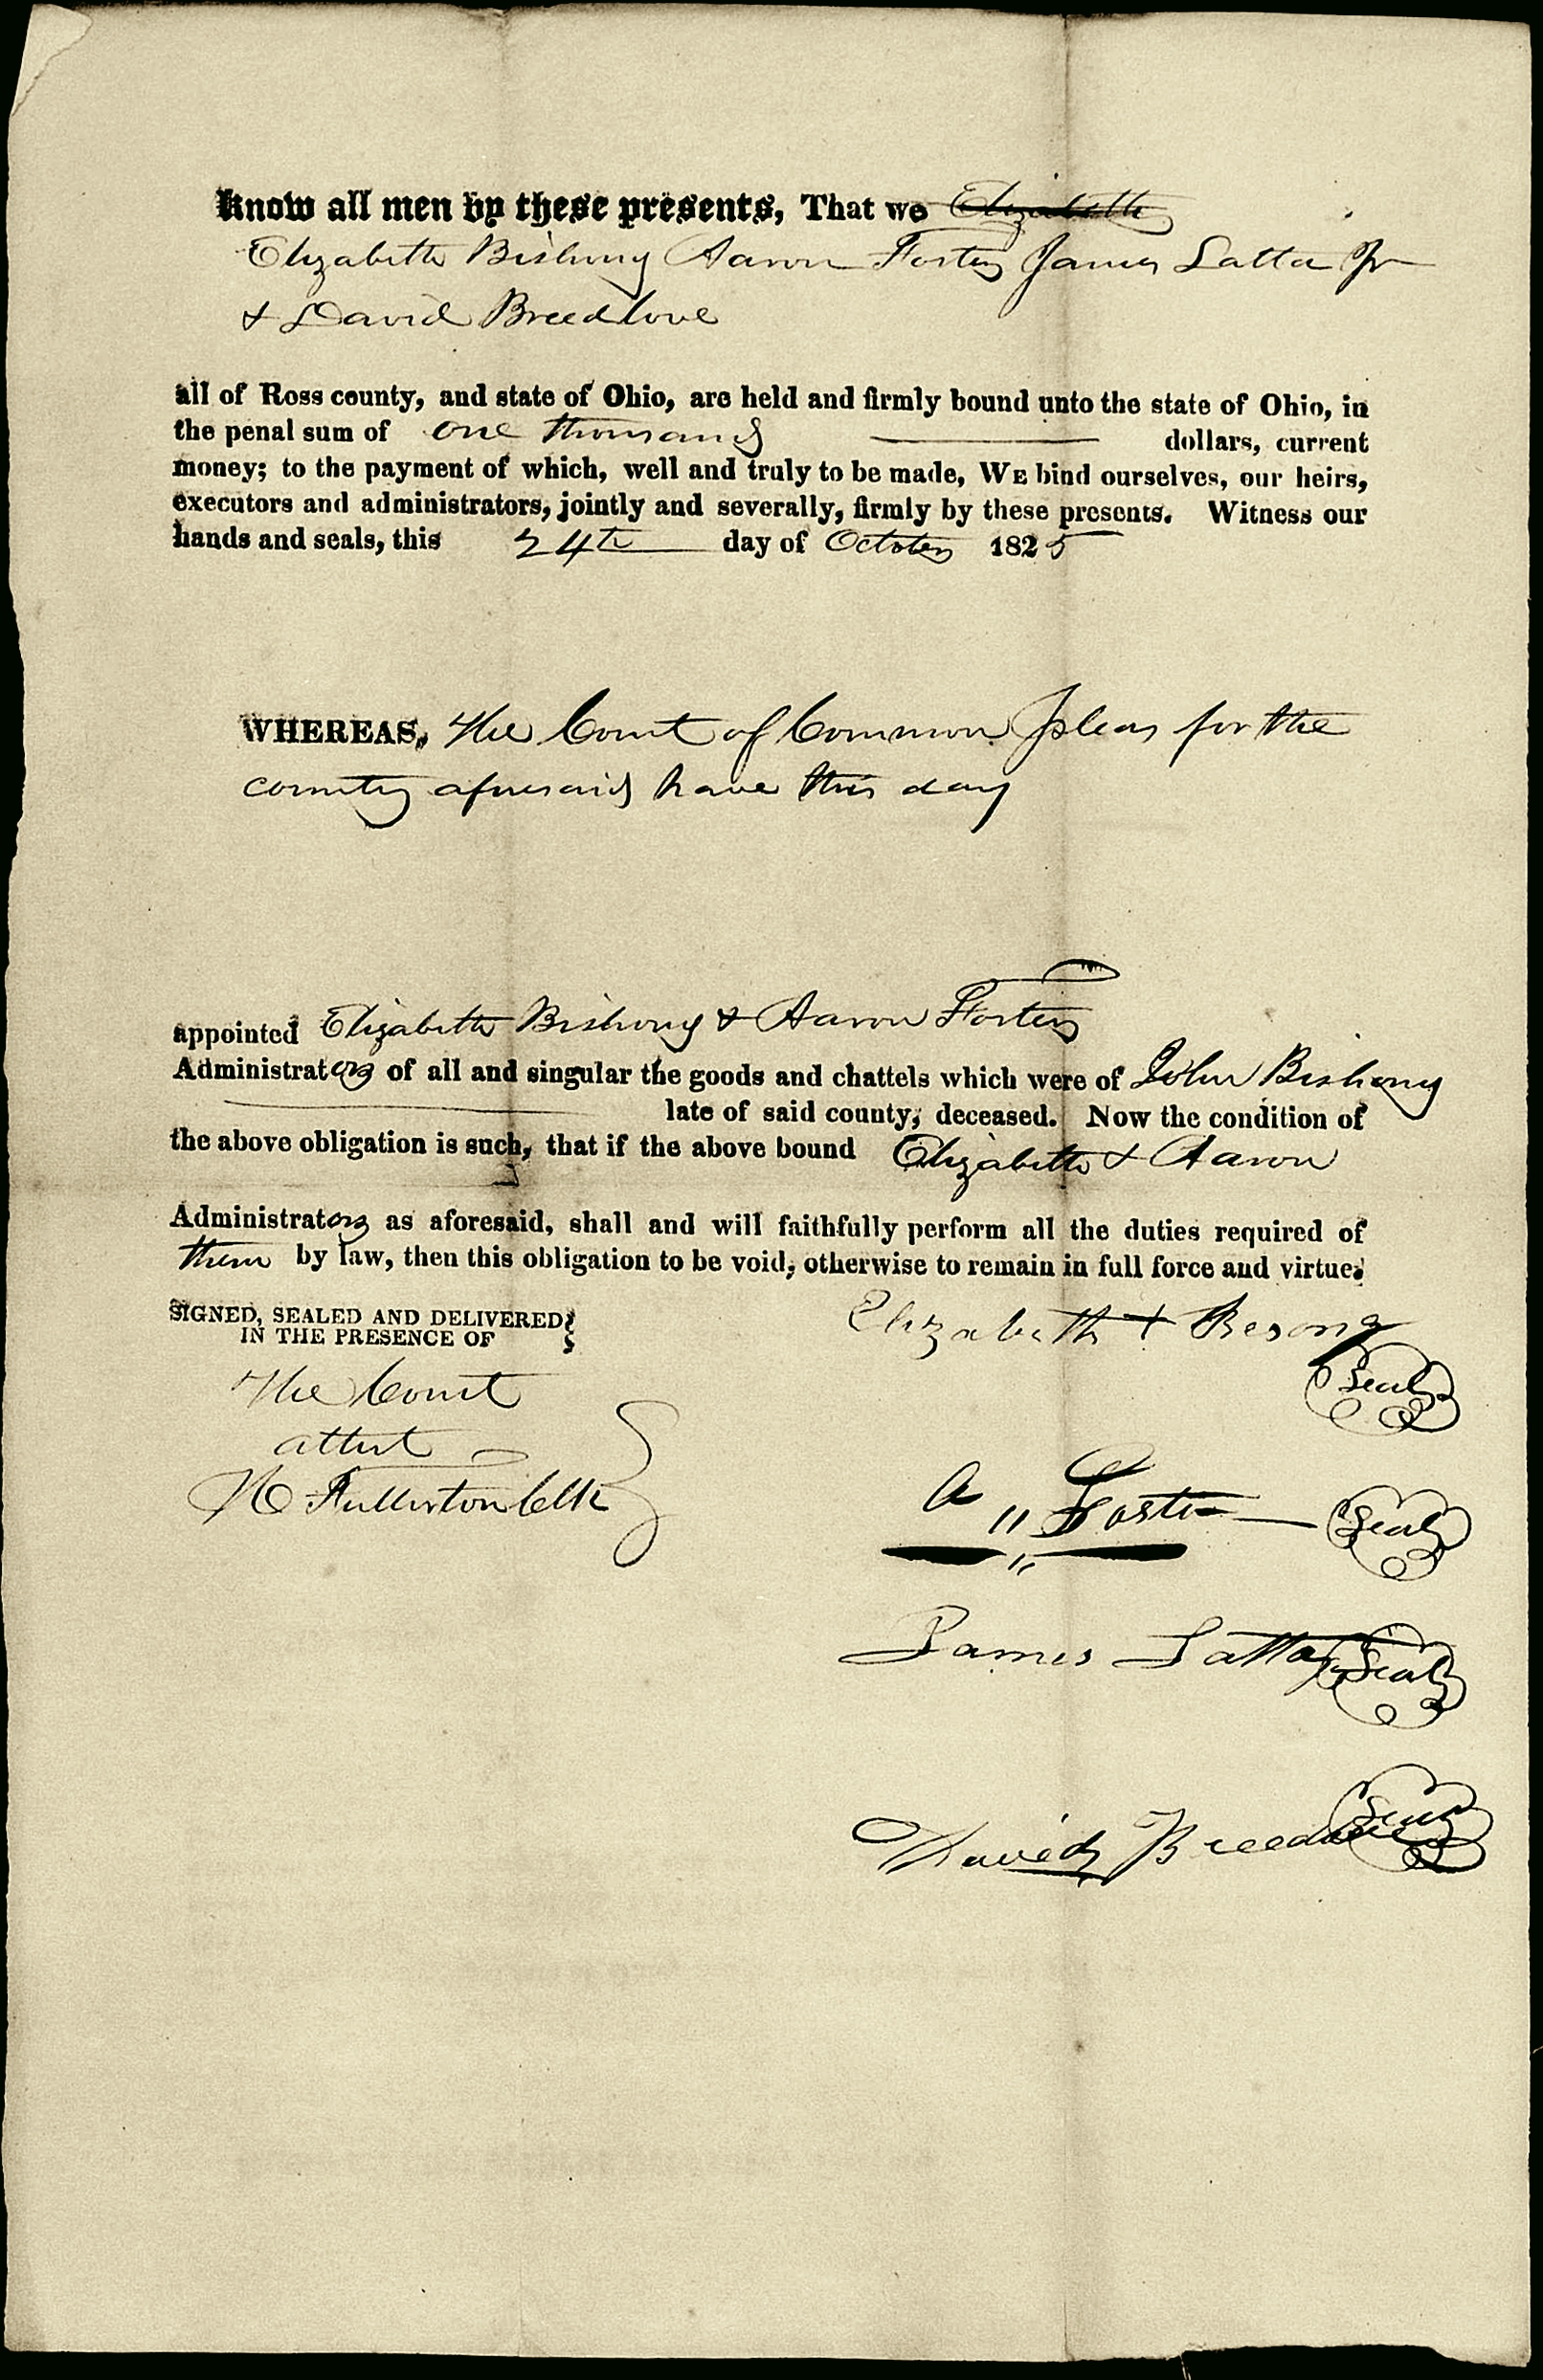 Know all men by these presents, That we Elizabeth
Elizabeth Bishong Aaron Foster James Latta Jr
& David Breedlove
all of Ross county, and state of Ohio, are held and firmly bound unto the state of Ohio, in
the penal sum of one thousand dollars, current
money; to the payment of which, well and truly to be made, WE bind ourselves, our heirs,
executors and administrators, jointly and severally, firmly by these presents. Witness our
hands and seals, this 24th day of October 1825
WHEREAS, the Court of Common Pleas for the
county aforesaid have this day
appointed Elizabeth Bishong & Aaron Foster
Administrators of all and singular the goods and chattels which were of John Bishong
late of said county, deceased. Now the condition of
the above obligation is such, that if the above bound Elizabeth & Aaron
Administrators as aforesaid, shall and will faithfully perform all the duties required of
them by law, then this obligation to be void, otherwise to remain in full force and virtue.
SIGNED, SEALED AND DELIVERED
IN THE PRESENCE OF
The Court
attest
H Fullerton Clk
Elizabeth + Besong
Seal
A Foster Seal
James Latta Jr Seal
David Breedlove Seal